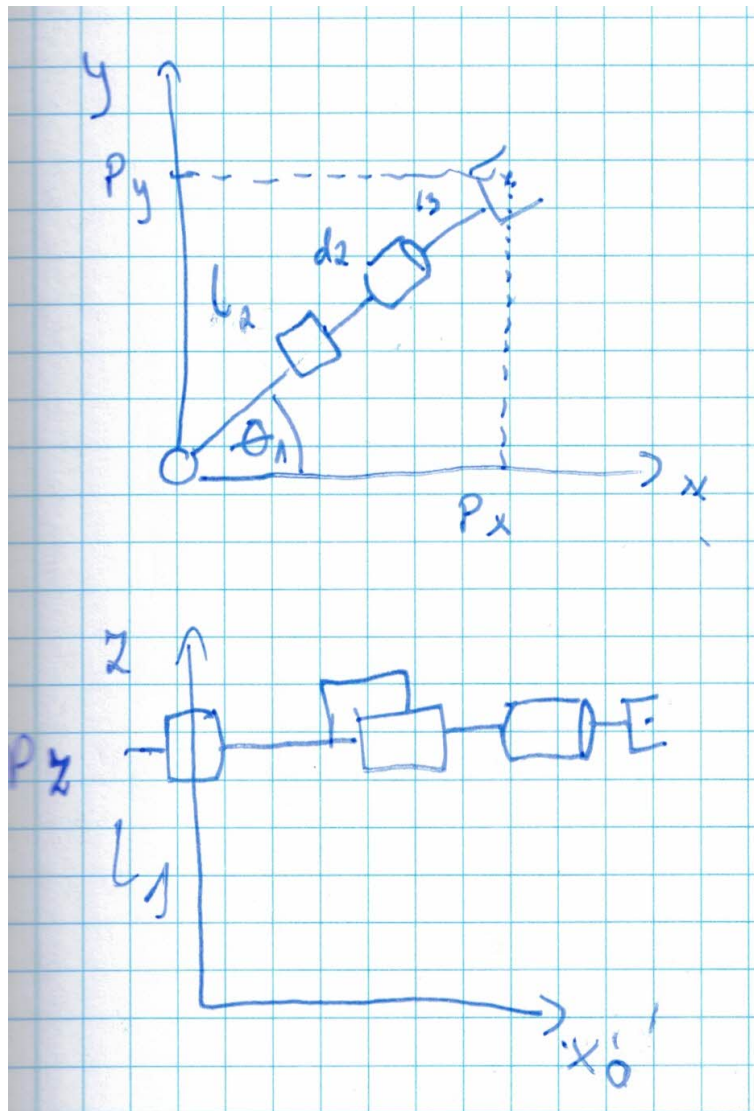 y
Py
l3
d2
l2
θ1
x
Px
z
Pz
l1
x0'